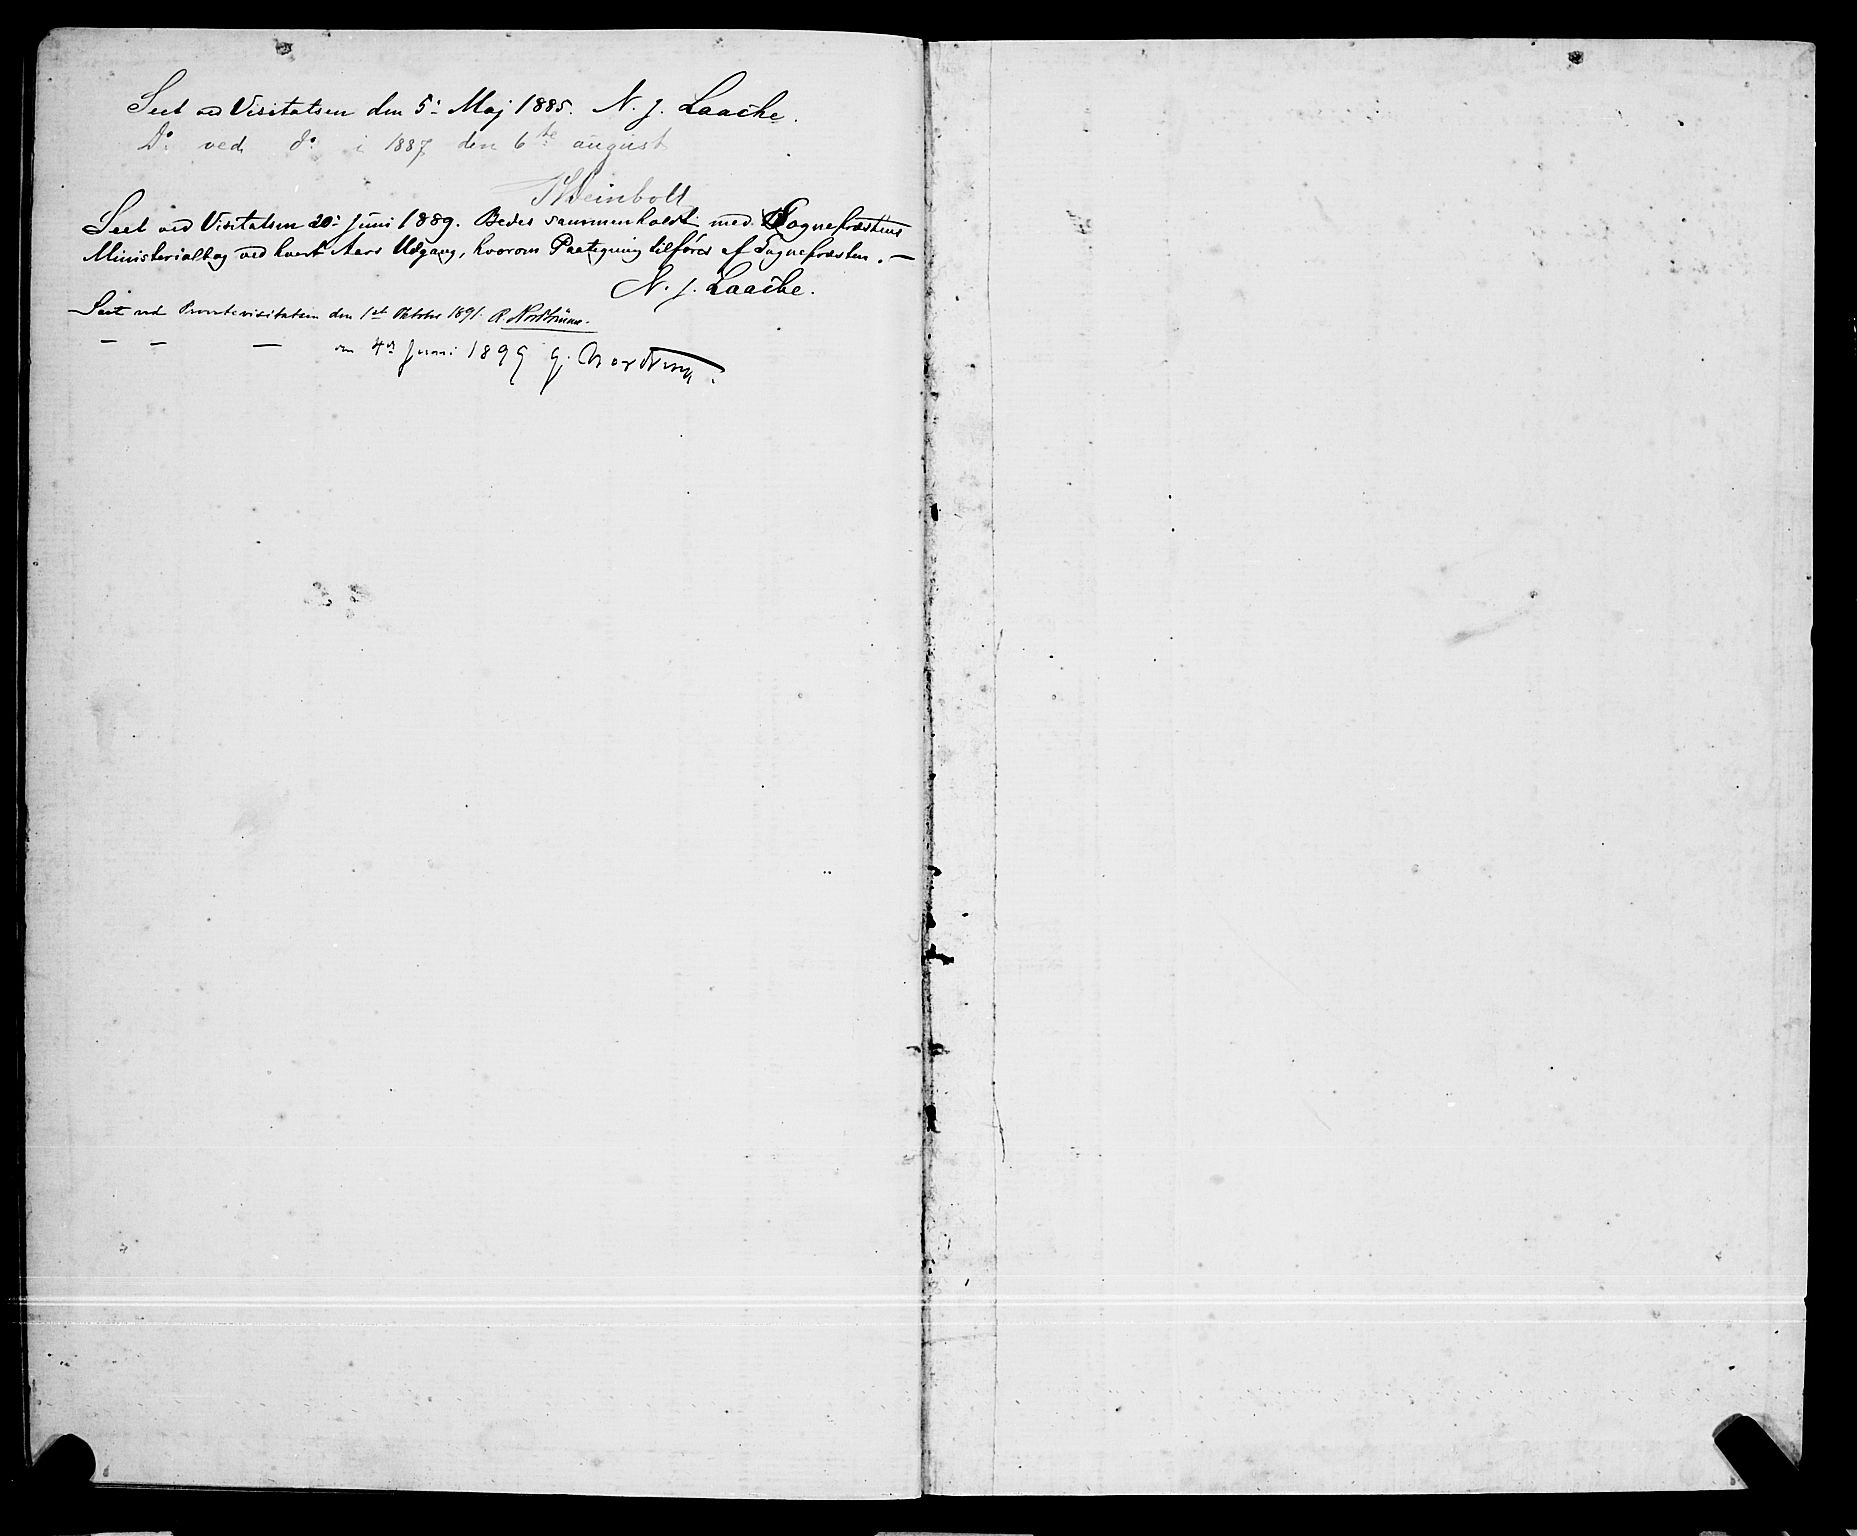 Seet ved Visitatsen den 5: Maj 1885. N. J. Laache.
Do ved do i 1887 den 6te august
Steinbolt
Seet ved Visitatsen 20: Juni 1889. Bedes sammenholdt med Sognepræstens
Ministerialbog ved hvert Aars Udgang, hvorom Paategning tilføres af Sognepræsten. —
N. J. Laache.
Seet ved Provstevisitatsen den 1st Oktober 1891.
— — — den 4de Juni 1899